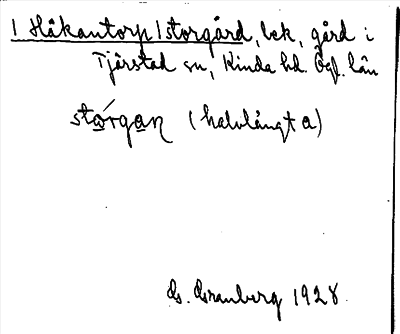 1 Håkantorp / storgård, bek, gård i
Tjärstad sn, Kinda hd. Ögl. län
stórgan (halvlångt a)
G. Granberg 1928